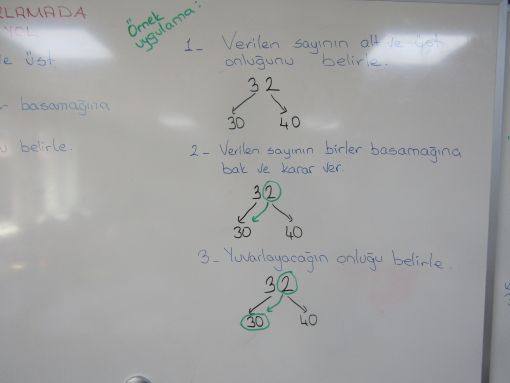 RLAMADA
YOL
e üst
r basamağına
u belirle.
Örnek
uygulama:
1- Verilen sayının alt ve üst
onluğunu belirle.
32
30 40
2- Verilen sayının birler basamağına
bak ve karar ver.
32
30 40
3- Yuvarlayacağın onluğu belirle.
32
30 40